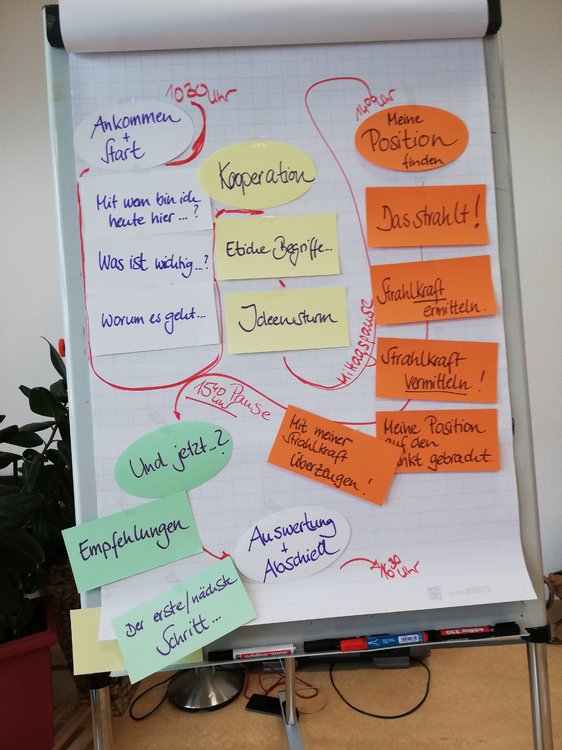 1030 Uhr
Ankommen
+
Start
Mit wem bin ich
heute hier...?
Was ist wichtig...?
Worum es geht...
Kooperation
Etliche Begriffe...
Ideensturm
Mittagspause
1400 Uhr
Meine
Position
finden
Das strahlt!
Strahlkraft
ermitteln.
Strahlkraft
vermitteln!
Meine Position
auf den
Punkt gebracht.
Mit meiner
Strahlkraft
überzeugen!
1540 Pause
Uhr
Und jetzt...?
Empfehlungen
Der erste/nächste
Schritt...
Auswertung
+
Abschied
1630
Uhr
edding